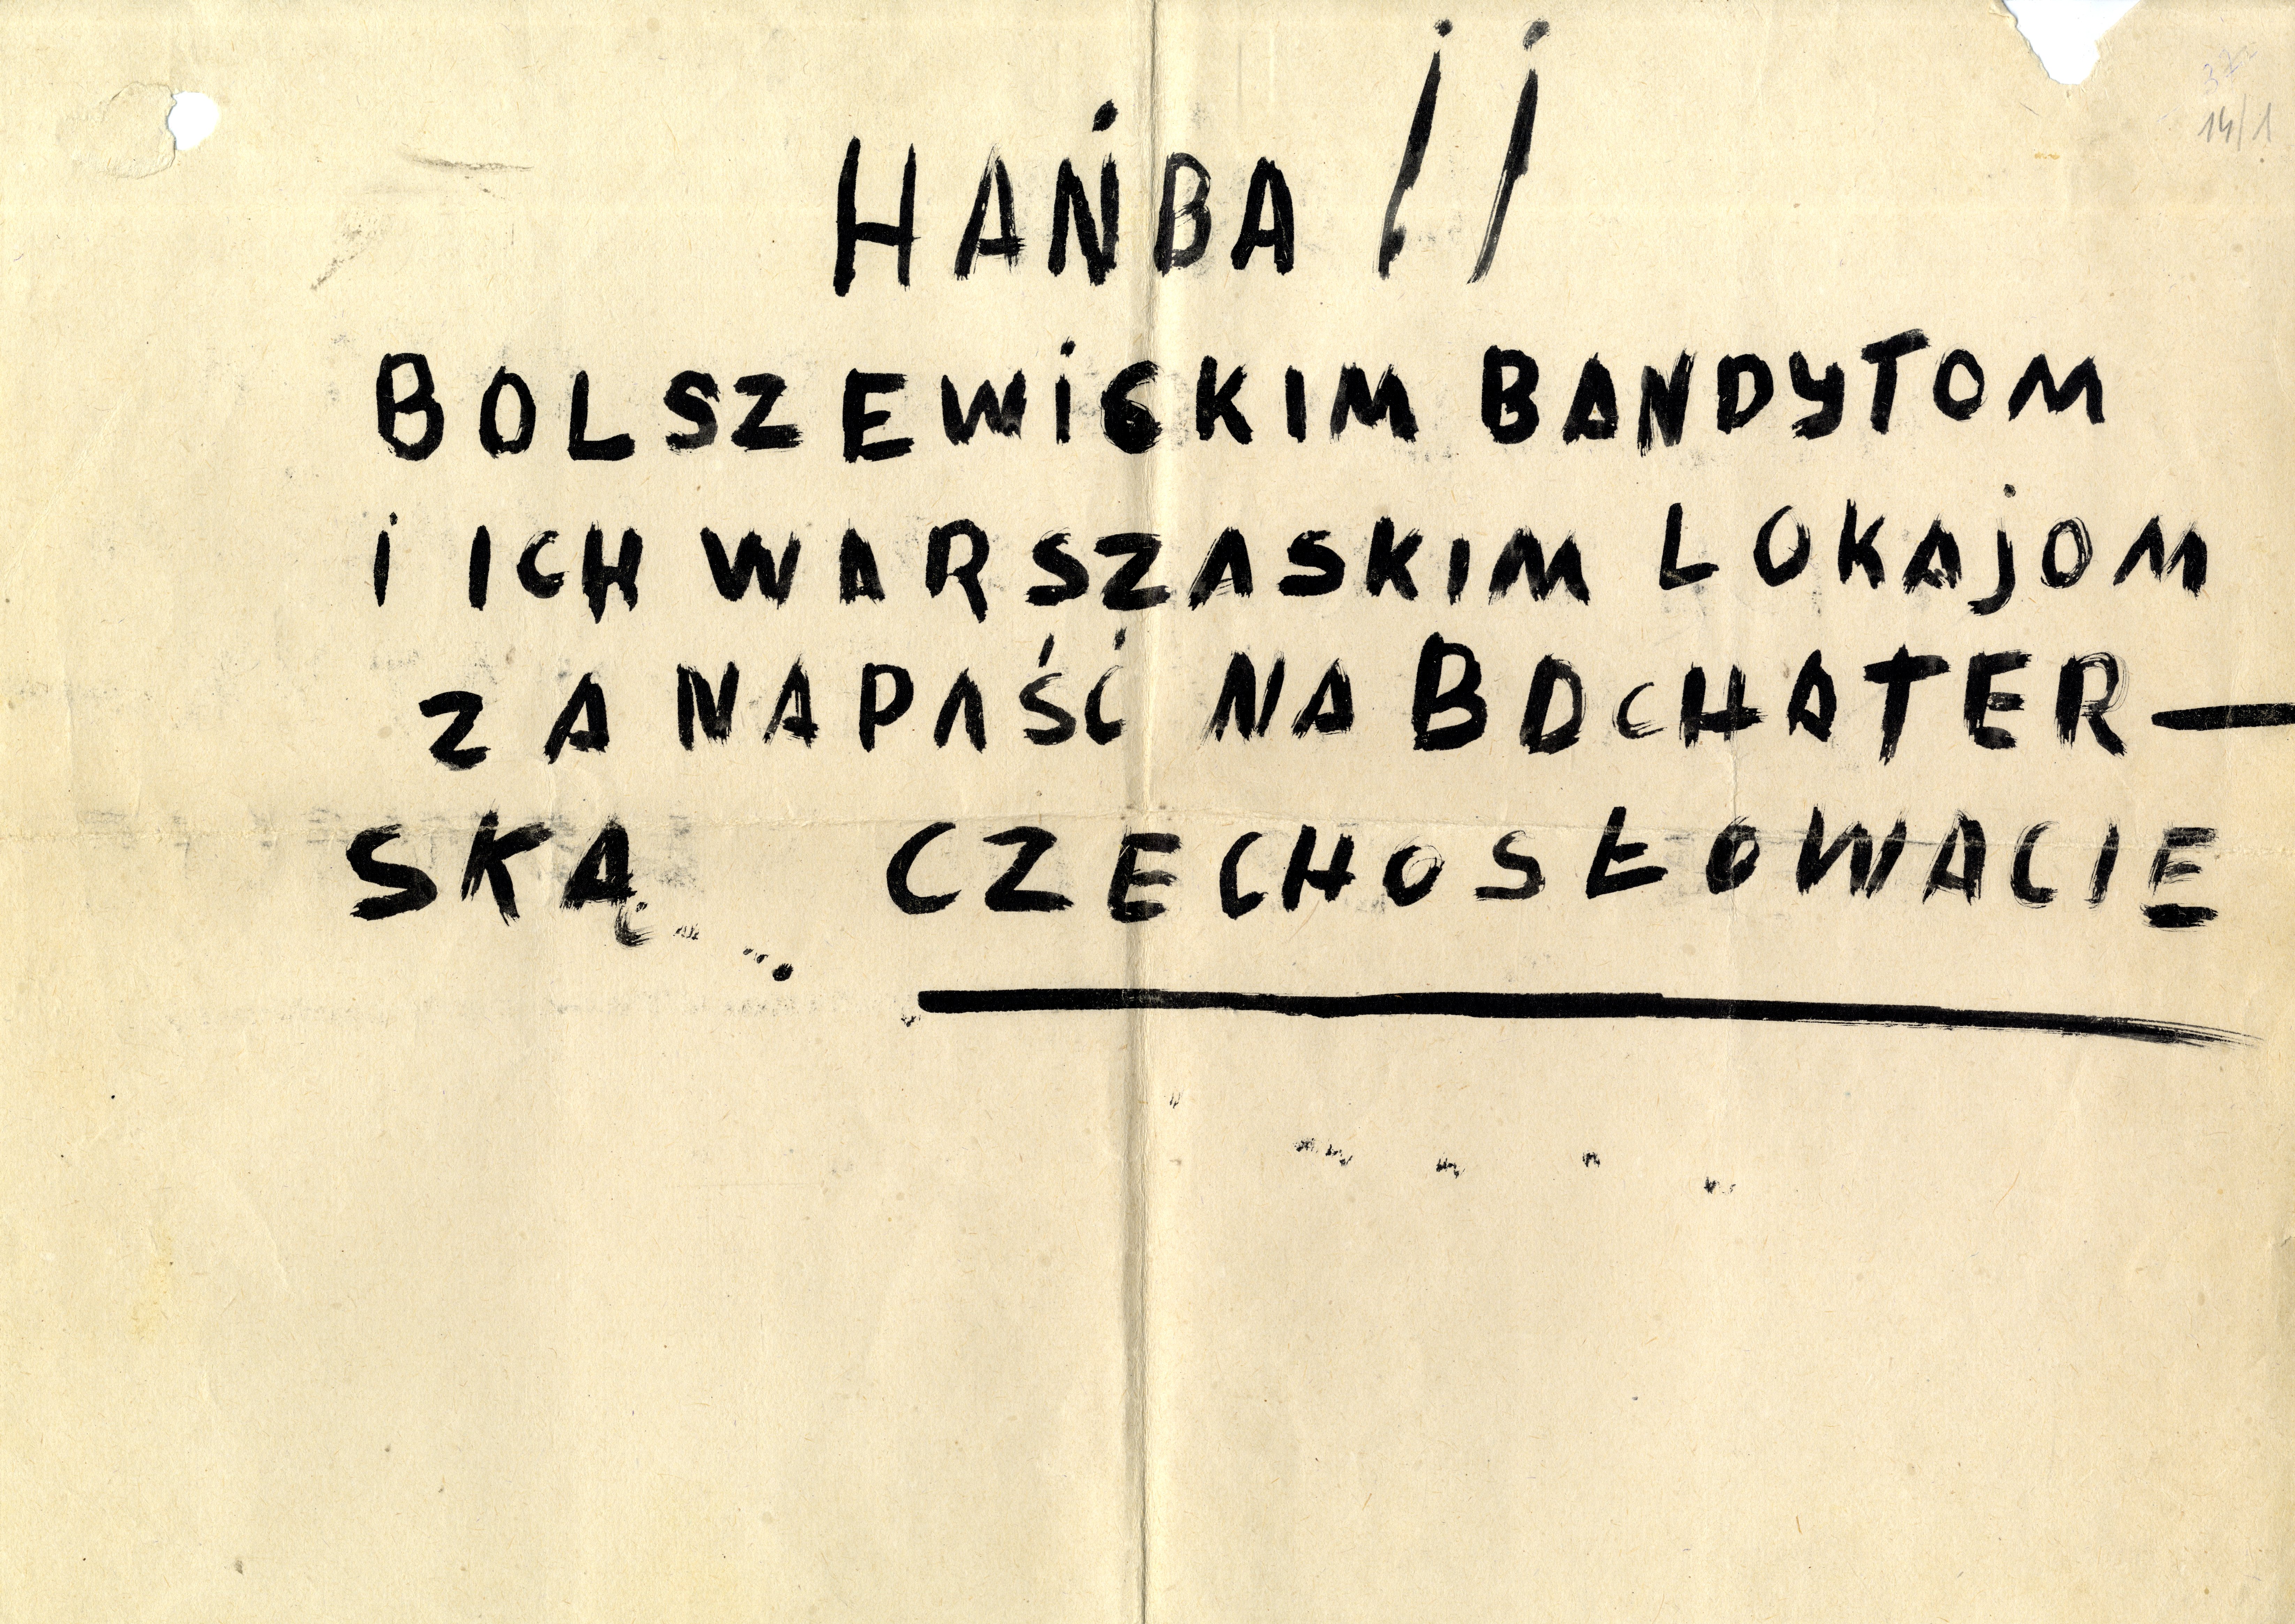 HAŃBA !!
BOLSZEWiCKIM BANDYTOM
i ICH WARSZASKIM LOKAjOM
ZA NAPAŚĆ NA BOCHATER—
SKĄ CZECHOSŁOWACIĘ
14/1